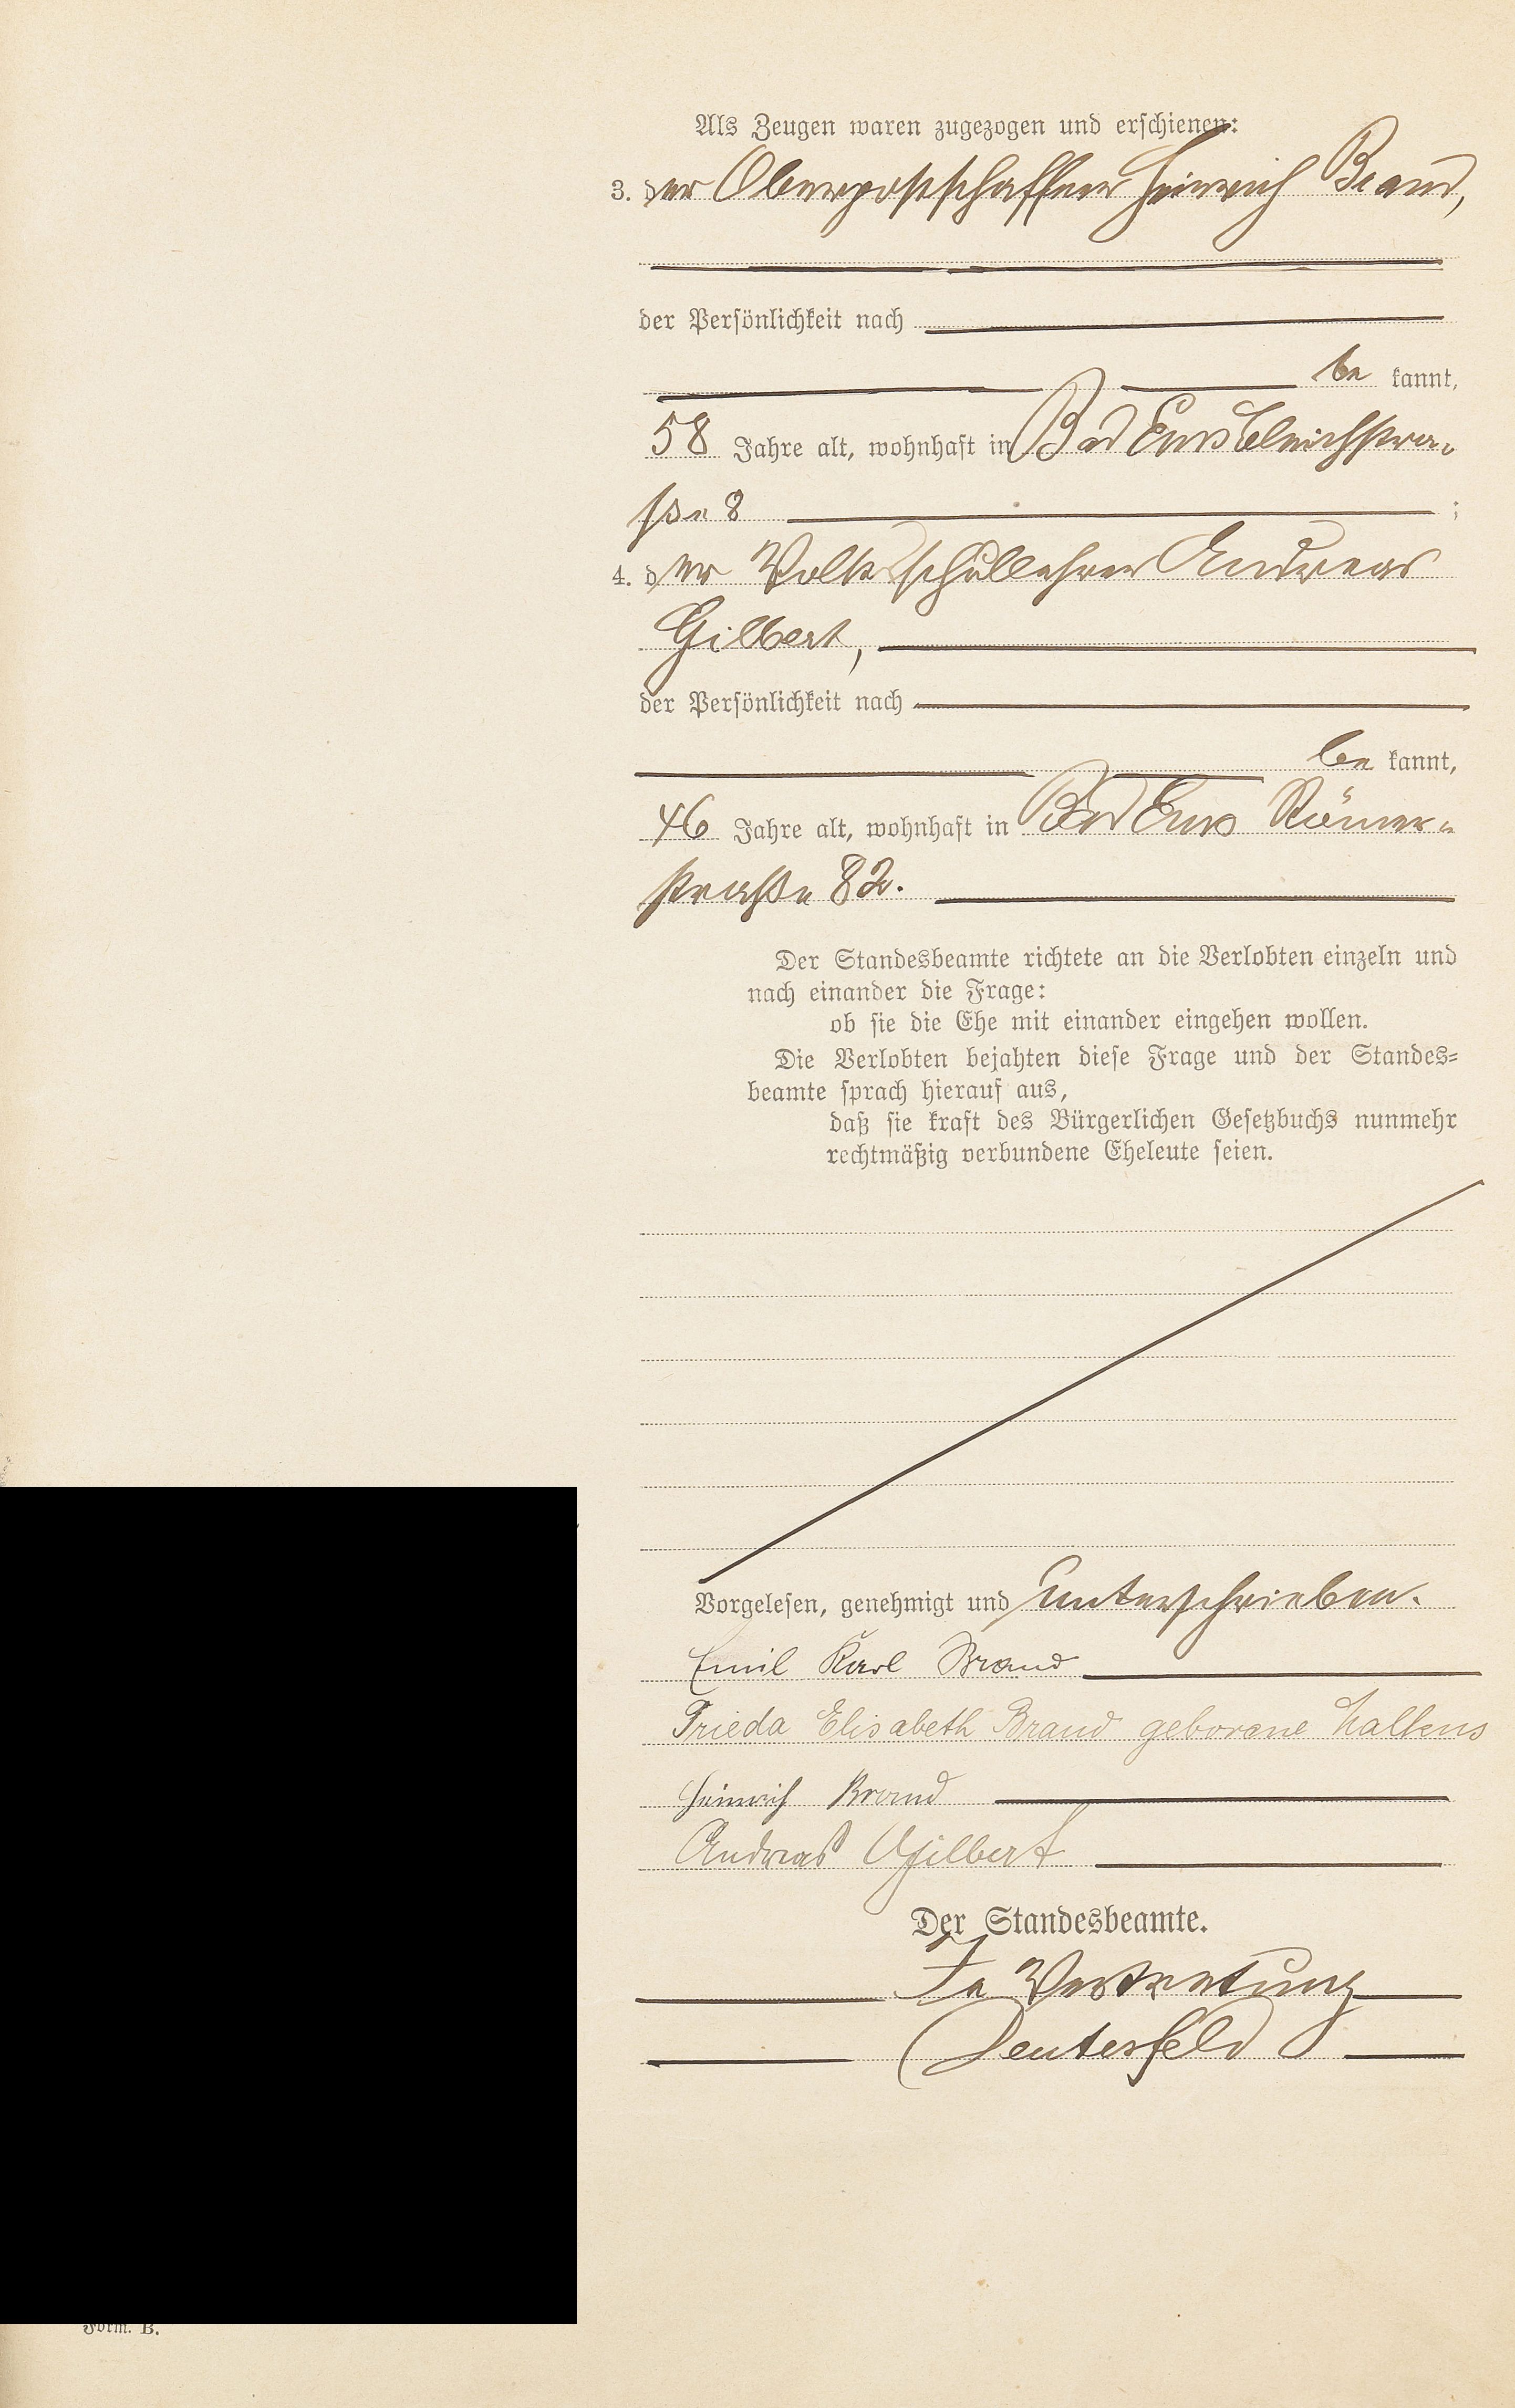 Als Zeugen waren zugezogen und erschienen:
3. der Oberpostschaffner Heinrich Brand,
der Persönlichkeit nach
be kannt,
58 Jahre alt, wohnhaft in Bad Ems Bleichstra-
ße 8 ;
4. der Volksschullehrer Andreas
Gilbert,
der Persönlichkeit nach
be kannt,
46 Jahre alt, wohnhaft in Bad Ems Römer-
straße 82.
Der Standesbeamte richtete an die Verlobten einzeln und
nach einander die Frage:
ob sie die Ehe mit einander eingehen wollen.
Die Verlobten bejahten diese Frage und der Standes-
beamte sprach hierauf aus,
daß sie kraft des Bürgerlichen Gesetzbuchs nunmehr
rechtmäßig verbundene Eheleute seien.
Vorgelesen, genehmigt und unterschrieben.
Emil Karl Brand
Frieda Elisabeth Brand geborene
Heinrich Brand
Andreas Gilbert
Der Standesbeamte.
In Vertretung
Deutesfeld
Form. B.